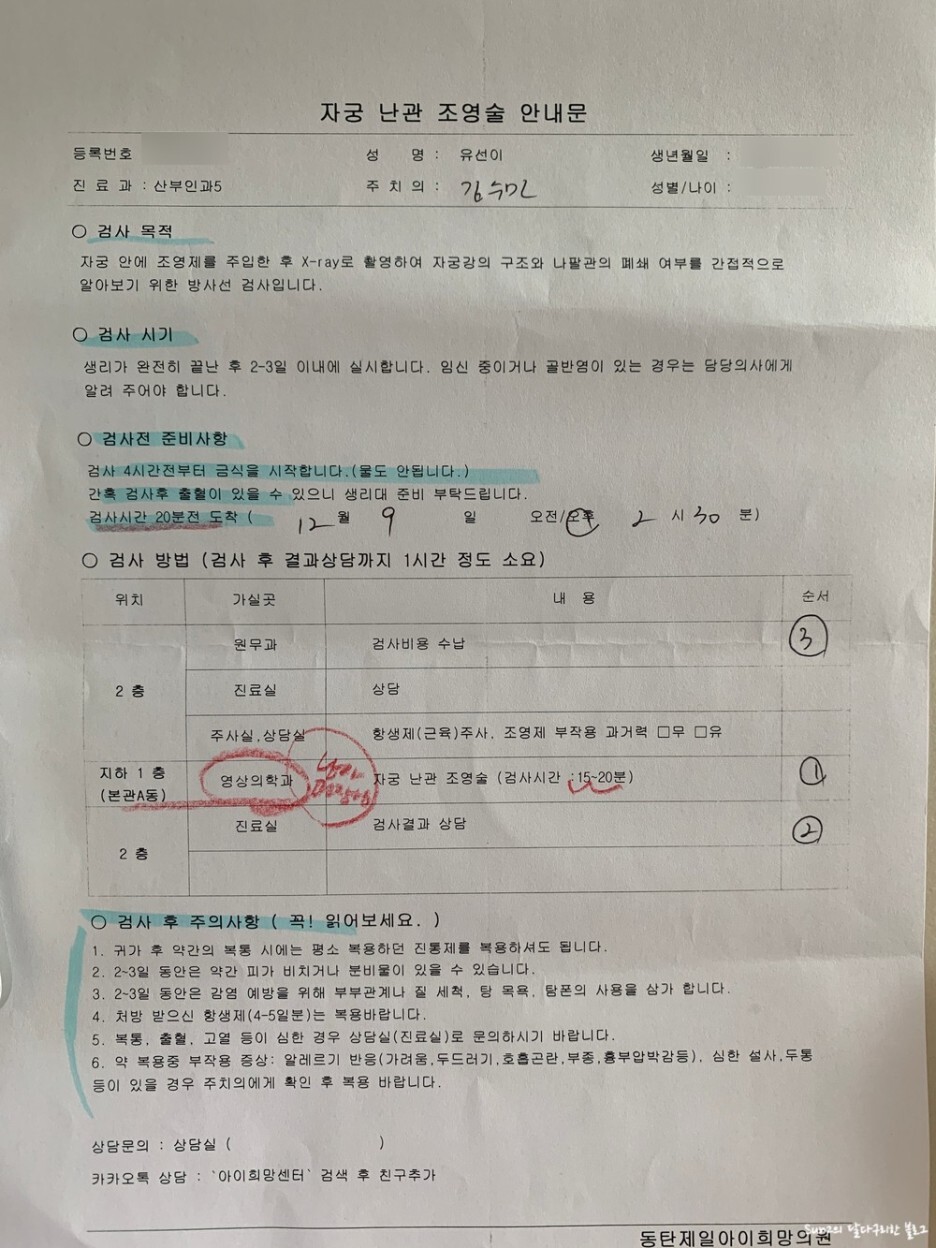 자궁 난관 조영술 안내문
등록번호 성 명 : 유선이 생년월일 :
진 료 과 : 산부인과5 주 치 의 : 김수민 성별/나이 :
○ 검사 목적
자궁 안에 조영제를 주입한 후 X-ray로 촬영하여 자궁강의 구조와 나팔관의 폐쇄 여부를 간접적으로
알아보기 위한 방사선 검사입니다.
○ 검사 시기
생리가 완전히 끝난 후 2-3일 이내에 실시합니다. 임신 중이거나 골반염이 있는 경우는 담당의사에게
알려 주어야 합니다.
○ 검사전 준비사항
검사 4시간전부터 금식을 시작합니다.(물도 안됩니다.)
간혹 검사후 출혈이 있을 수 있으니 생리대 준비 부탁드립니다.
검사시간 20분전 도착 ( 12 월 9 일 오전/오후 2 시 30 분)
○ 검사 방법 (검사 후 결과상담까지 1시간 정도 소요)
위치 가실곳 내 용 순서
원무과 검사비용 수납 ③
2 층 진료실 상담
주사실,상담실 항생제(근육)주사, 조영제 부작용 과거력 □무 □유
지하 1 층 (본관A동) 영상의학과 자궁 난관 조영술 (검사시간 :15~20분) ①
진료실 검사결과 상담 ②
2 층
○ 검사 후 주의사항 ( 꼭! 읽어보세요. )
1. 귀가 후 약간의 복통 시에는 평소 복용하던 진통제를 복용하셔도 됩니다.
2. 2~3일 동안은 약간 피가 비치거나 분비물이 있을 수 있습니다.
3. 2~3일 동안은 감염 예방을 위해 부부관계나 질 세척, 탕 목욕, 탐폰의 사용을 삼가 합니다.
4. 처방 받으신 항생제(4-5일분)는 복용바랍니다.
5. 복통, 출혈, 고열 등이 심한 경우 상담실(진료실)로 문의하시기 바랍니다.
6. 약 복용중 부작용 증상: 알레르기 반응(가려움,두드러기,호흡곤란,부종,흉부압박감등), 심한 설사,두통
등이 있을 경우 주치의에게 확인 후 복용 바랍니다.
상담문의 : 상담실 ( )
카카오톡 상담 : `아이희망센터` 검색 후 친구추가
동탄제일아이희망의원
의 달다구리한 블로그